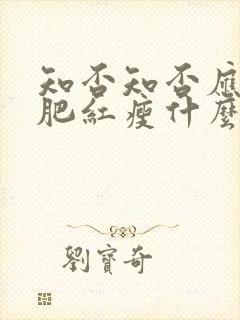 知否知否應
肥紅瘦什麼
劉寶奇